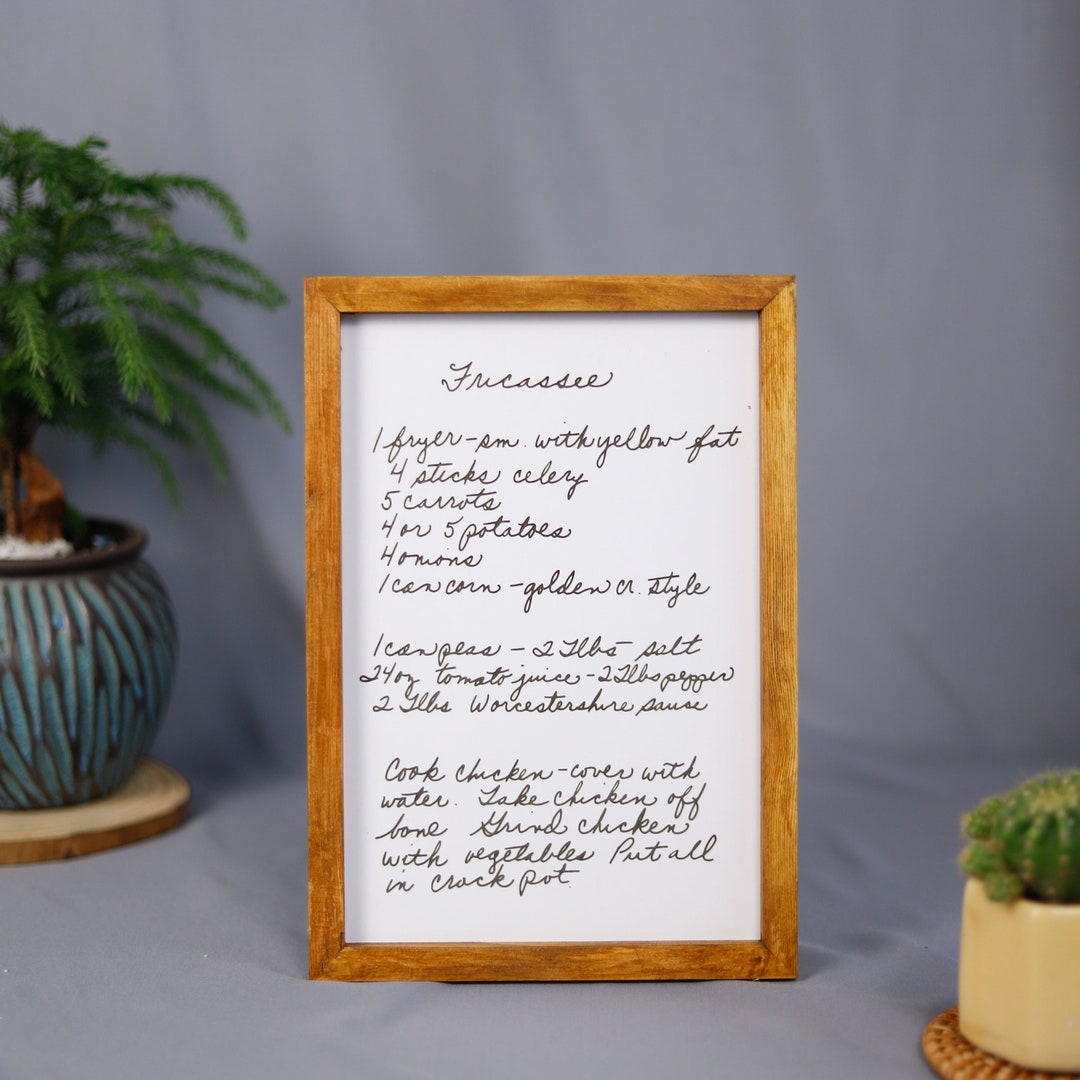 Fricassee
1 fryer - sm. with yellow fat
4 sticks celery
5 carrots
4 or 5 potatoes
4 onions
1 can corn - golden cr. style
1 can peas - 2 Tlbs - salt
24oz tomato juice - 2 Tlbs pepper
2 Tlbs Worcestershire sause
Cook chicken - cover with
water. Take chicken off
bone Grind chicken
with vegetables Put all
in crock pot.